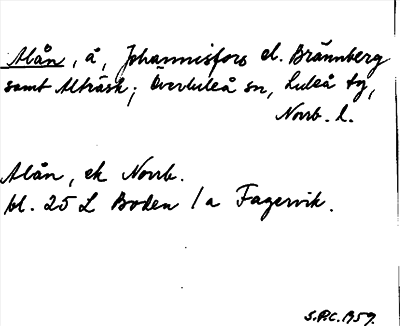 Alån, å, Johannisfors el. Brännberg
samt Alträsk; Överluleå sn, Luleå tg,
Norrb. l.
Alån, ek Norrb.
bl. 25 L Boden 1a Fagervik.
S.P.C. 1959.